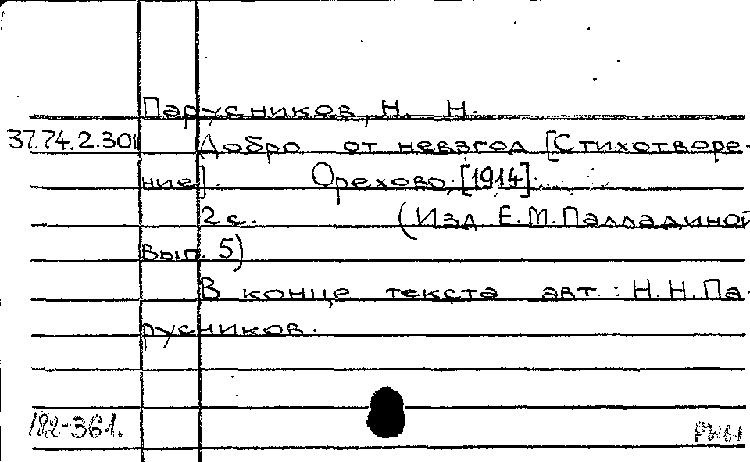 Парусников, Н. Н.
37.74.2.301 Добро от невзгод [Стихотворе-
ние]. Орехово, [1914].
2 с. (Изд. Е.М.Палладиной
Вып. 5)
В конце текста авт.: Н.Н.Па-
русников.
182-361.